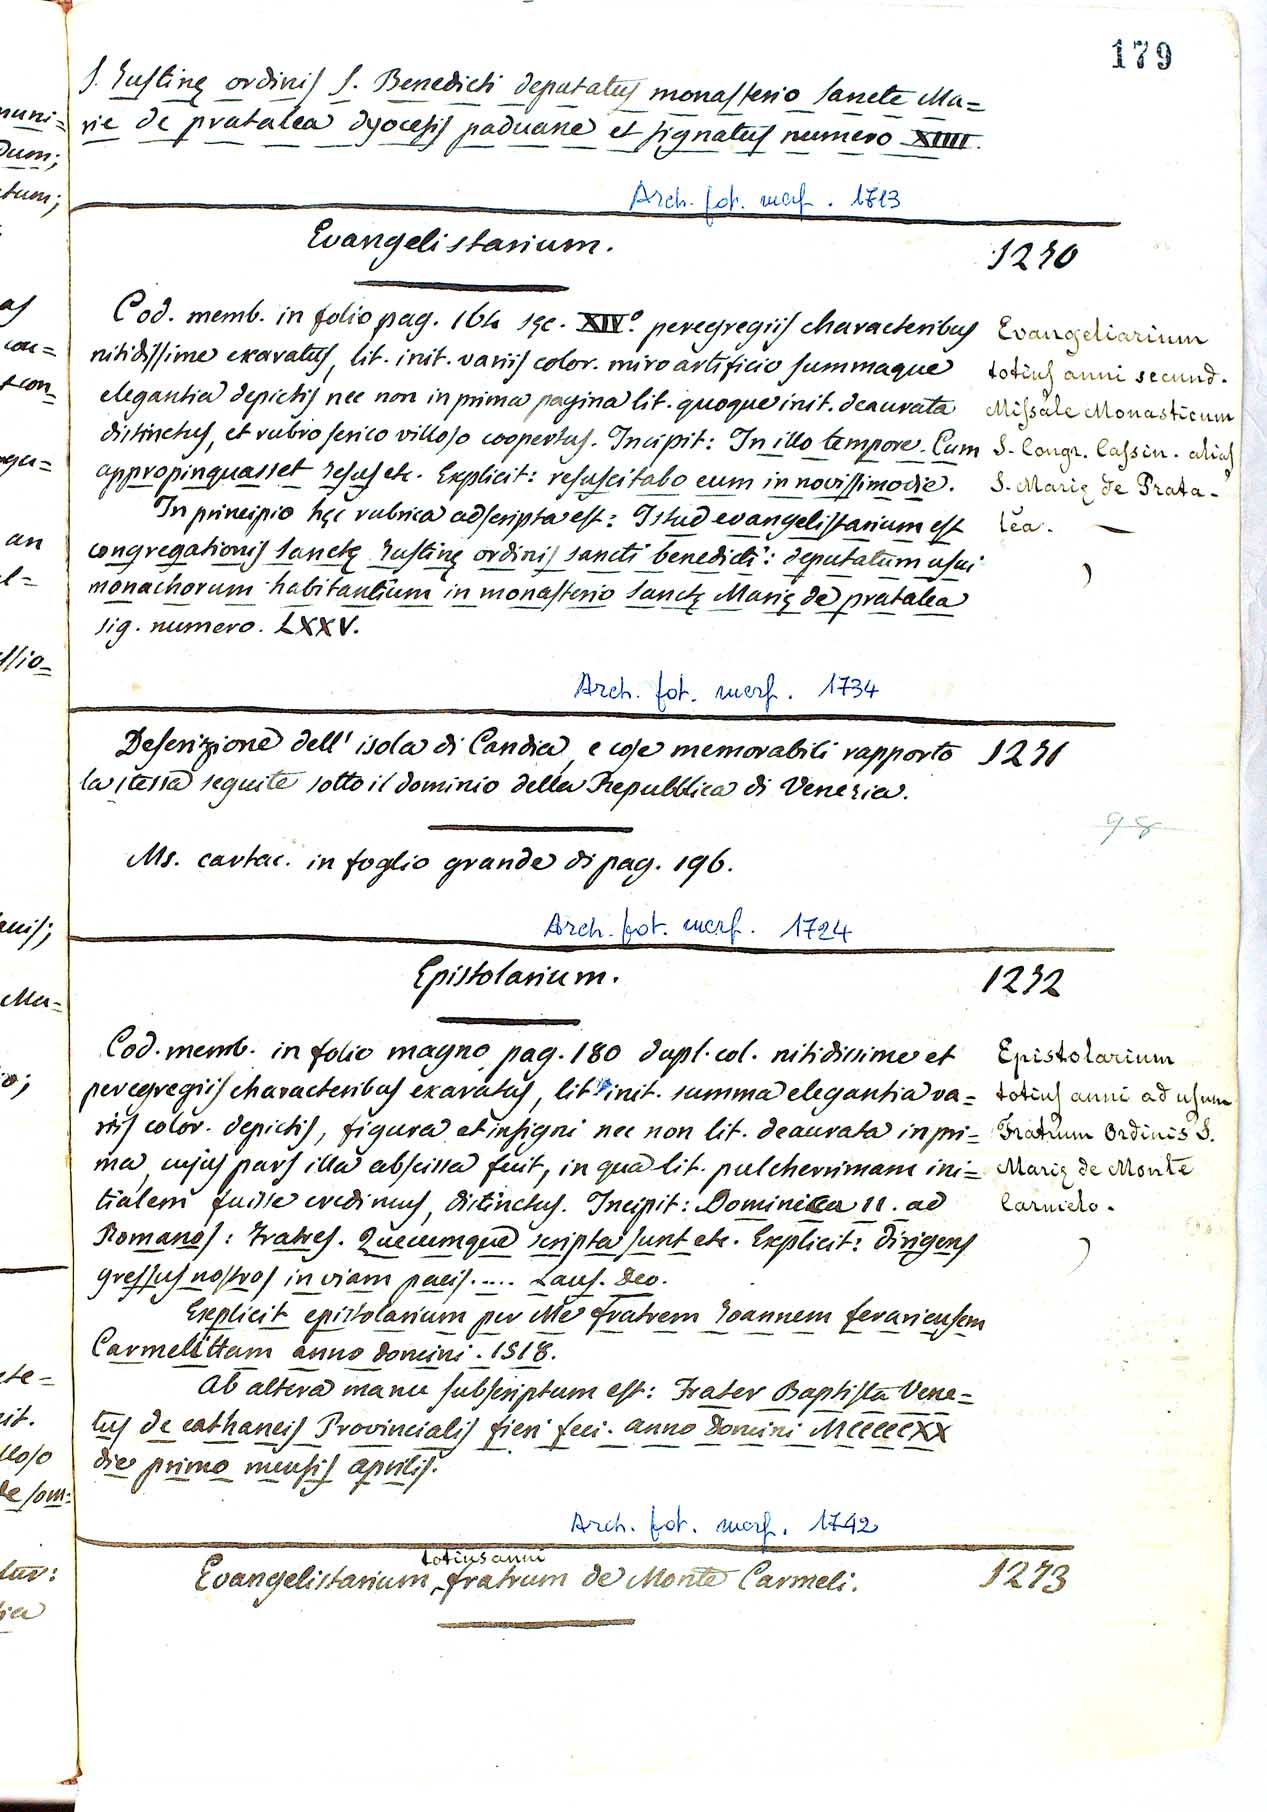 179
S. Justinę ordinis S. Benedicti deputatus monasterio sancte Ma=
rie de pratalea dyocesis paduane et signatus numero XIIII.
Arch. fot. marc. 1713
Evangelistarium.
1230
Cod. memb. in folio pag. 164 sęc. XIV.º peregregiis characteribus
nitidissime exaratus, lit. init. variis color. miro artificio summaque
elegantia depictis nec non in prima pagina lit. quoque init. deaurata
distinctus, et rubro serico villoso coopertus. Incipit: In illo tempore. Cum
appropinquasset Jesus etc. Explicit: resuscitabo eum in novissimo die.
In principio hęc rubrica adscripta est: Istud evangelistarium est
congregationis sanctę Justinę ordinis sancti benedicti: deputatum usui
monachorum habitantium in monasterio sanctę Marię de pratalea
sig. numero. LXXV.
Evangeliarium
totius anni secund.
Missale Monasticum
S. Congr. Cassin. alias
S. Marię de Prata-
lea.
Arch. fot. marc. 1734
Descrizione dell' isola di Candia, e cose memorabili rapporto
la stessa seguite sotto il dominio della Repubblica di Venezia.
1231
98
Ms. cartac. in foglio grande di pag. 196.
Arch. fot. marc. 1724
Epistolarium.
1232
Cod. memb. in folio magno pag. 180 dupl. col. nitidissime et
peregregiis characteribus exaratus, lit. init. summa elegantia va=
riis color. depictis, figura et insigni nec non lit. deaurata in pri=
ma, cujus pars illa abscissa fuit, in qua lit. pulcherrimam ini=
tialem fuisse credimus, distinctus. Incipit: Dominica II. ad
Romanos: Fratres. Quecumque scripta sunt etc. Explicit: dirigens
gressus nostros in viam pacis..... Laus. Deo.
Explicit epistolarium per Me fratrem Joannem ferariensem
Carmelittam anno domini. 1518.
Ab altera manu subscriptum est: Frater Baptista Vene=
tus de cathaneis Provincialis fieri feci. anno domini MCCCCCXX
die primo mensis aprilis.
Epistolarium
totius anni ad usum
Fratrum Ordinis S.
Marię de Monte
Carmelo.
Arch. fot. marc. 1742
totius anni
Evangelistarium fratrum de Monte Carmeli.
1233